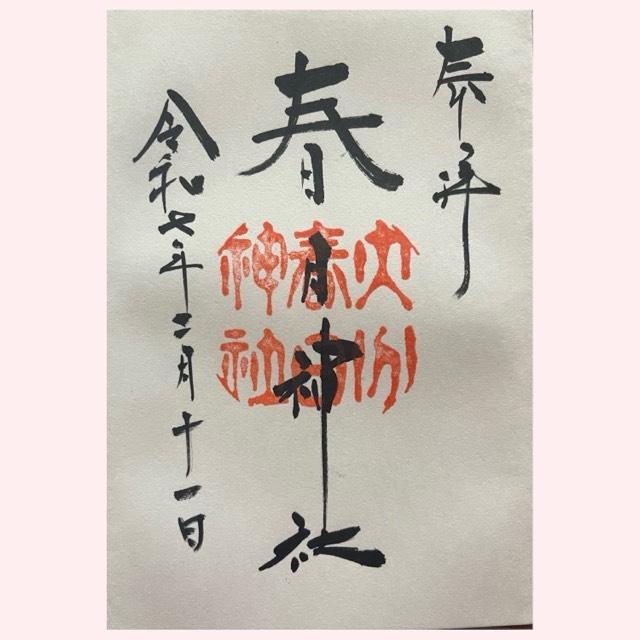 奉拝
春日神社
大分
春日
神社
令和七年二月十一日